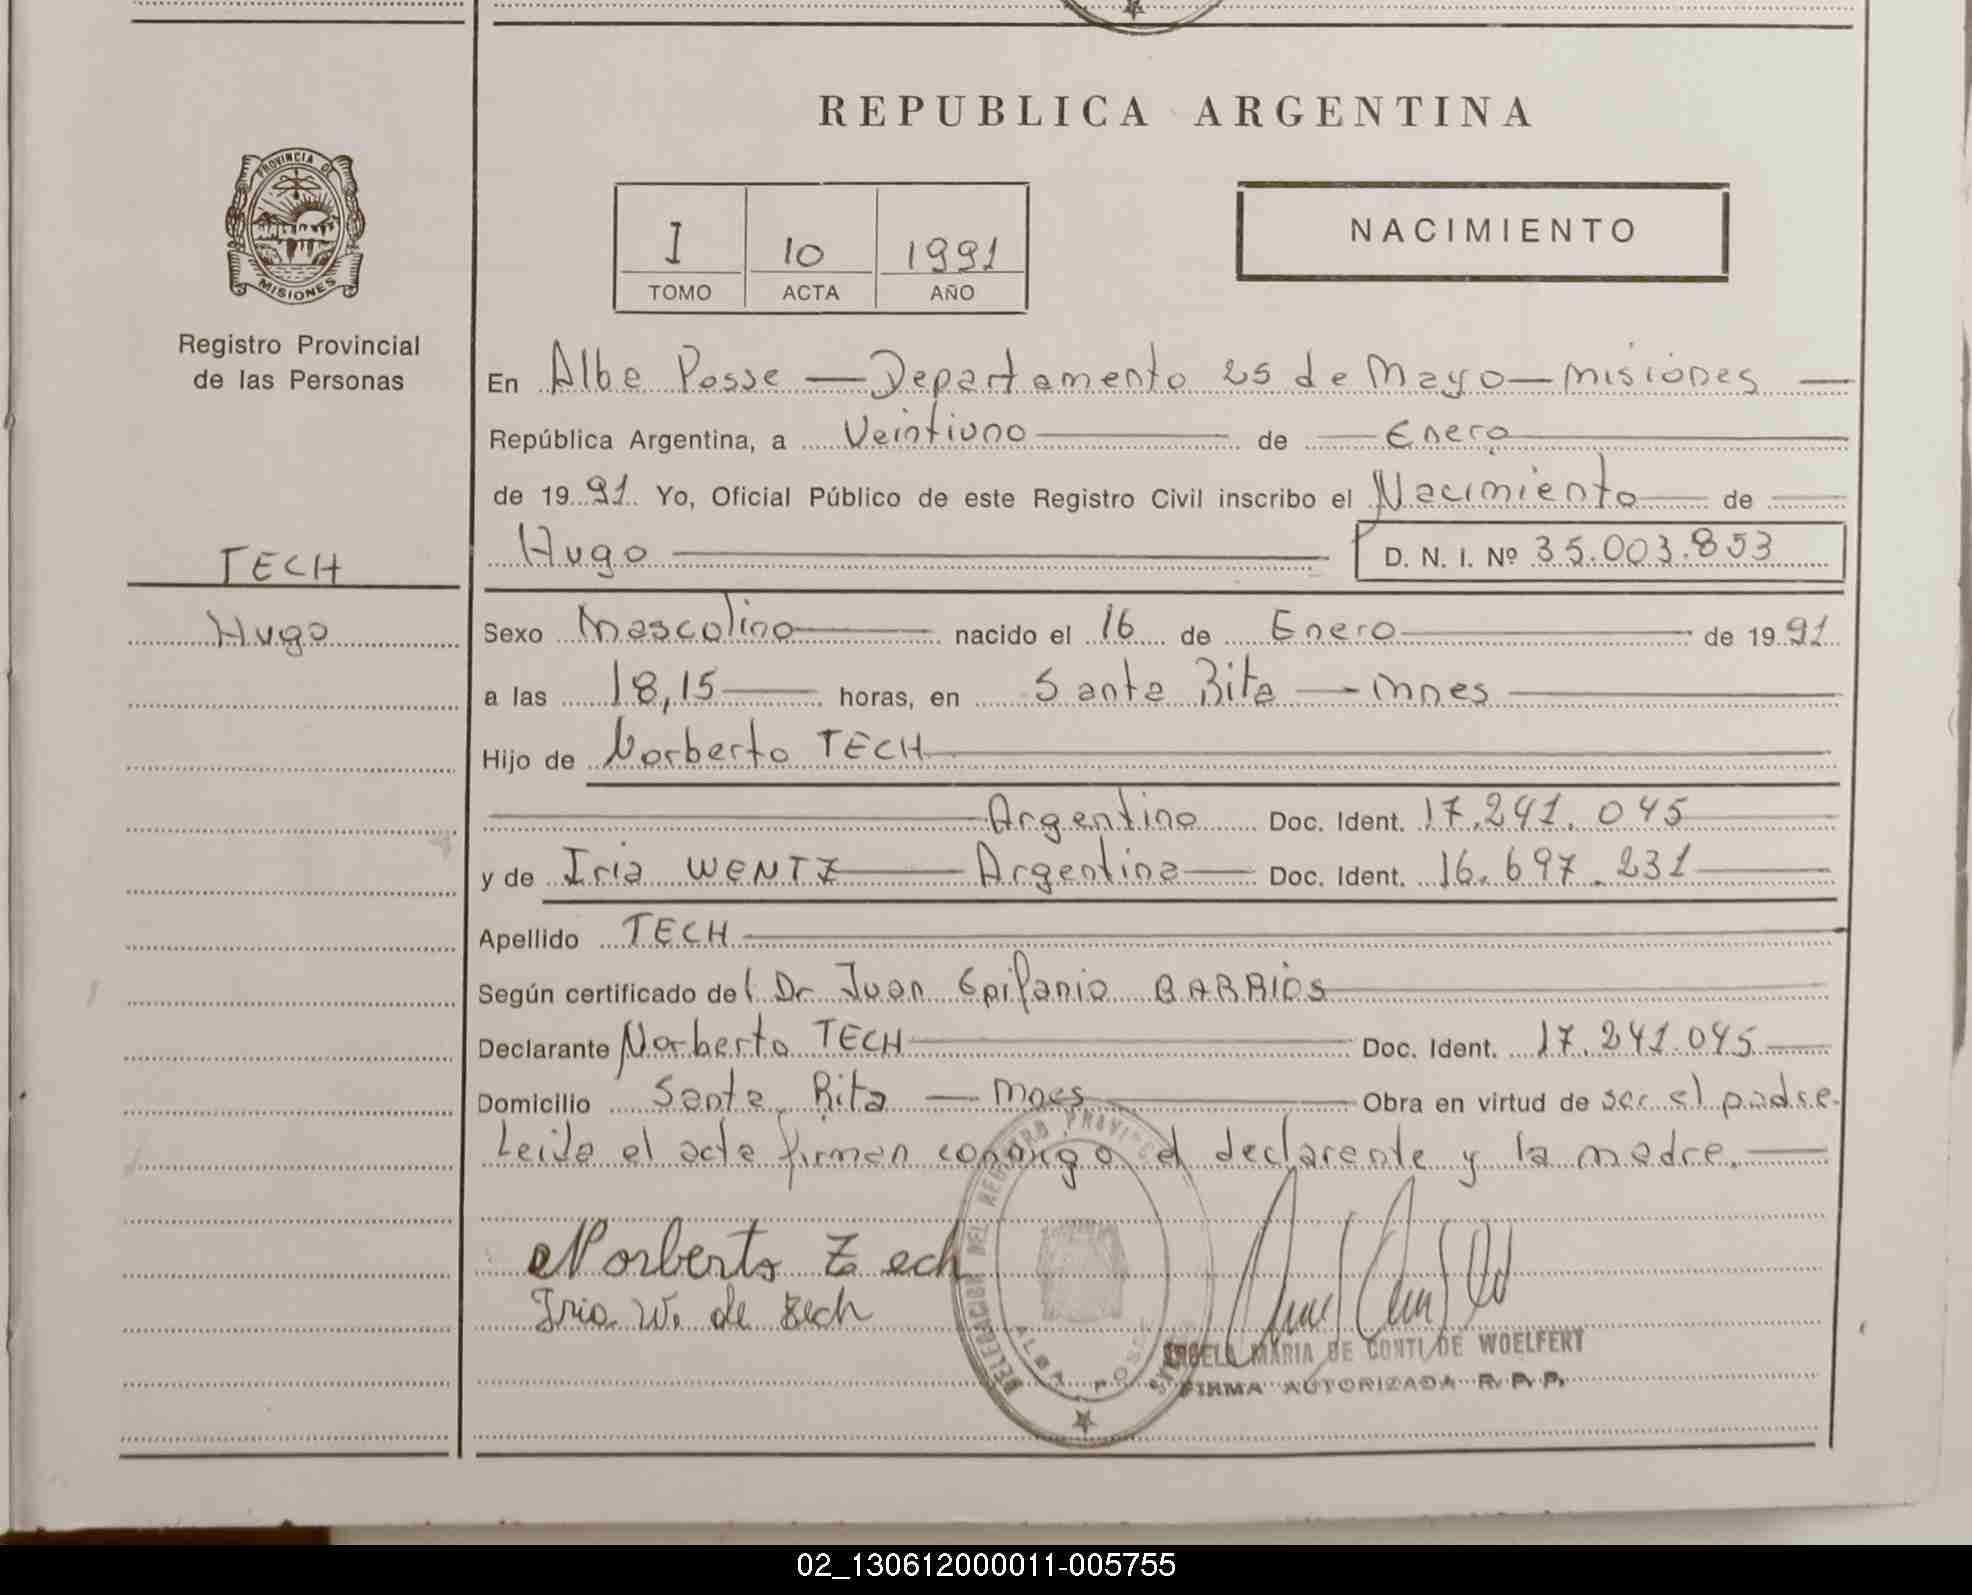 REPUBLICA ARGENTINA
PROVINCIA DE
MISIONES
Registro Provincial
de las Personas
I 10 1991
TOMO ACTA AÑO
NACIMIENTO
En Alba Posse — Departamento 25 de Mayo — Misiones —
República Argentina, a Veintiuno de Enero
de 1991 Yo, Oficial Público de este Registro Civil inscribo el Nacimiento de
Hugo D. N. I. Nº 35.003.853
TECH
Hugo
Sexo Masculino nacido el 16 de Enero de 1991
a las 18,15 horas, en Santa Rita — Mnes
Hijo de Norberto TECH
Argentino Doc. Ident. 17.241.045
y de Iria WENTZ Argentina Doc. Ident. 16.697.231
Apellido TECH
Según certificado del Dr Juan Epifanio BARRIOS
Declarante Norberto TECH Doc. Ident. 17.241.045
Domicilio Santa Rita — Mnes Obra en virtud de ser el padre.
Leída el acta firman conmigo el declarante y la madre.
Norberto Zech
Iria W. de Zech
DELEGACION DEL REGISTRO
ALBA POSSE
MARIA DE CONTI DE WOELFERT
FIRMA AUTORIZADA R. P. P.
02_130612000011-005755